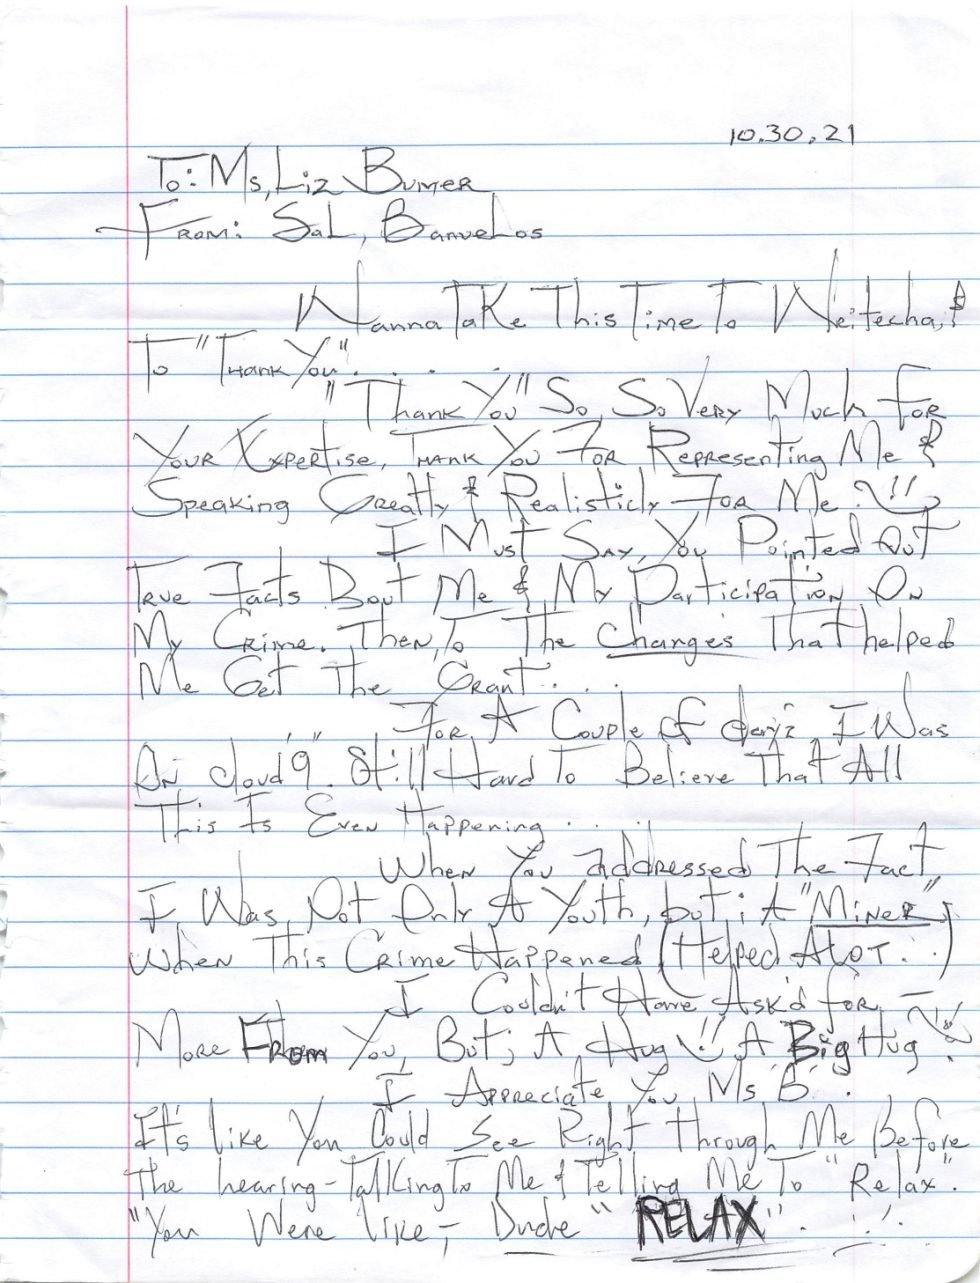 10.30.21
To: Ms, Liz Bumer
From: Sal, Banuelos
Wanna Take This Time To &
To "Thank You" . . . .
"Thank You" So, So Very Much For
Your Xpertise, Thank You For Representing Me &
Speaking Greatly & Realisticly For Me.
I Must Say, You Pointed Out
True Facts Bout Me & My Participation On
My Crime. Then, To The Changes That helped
Me Get The Grant . . . .
For A Couple of dayz I Was
On cloud "9". Still Hard To Believe That All
This Is Even Happening . . . . .
When You Addressed The Fact
I Was Not Only A Youth, but; A "Miner"
When This Crime Happened (Helped Alot . .)
I Couldn't Have Ask'd for
More From You, But; A Hug !! A Big Hug
I Appreciate You Ms. B. . .
It's like You Could See Right Through Me Before
the hearing - Talking To Me & Telling Me To "Relax".
"You Were like, - Dude "RELAX" . . . .